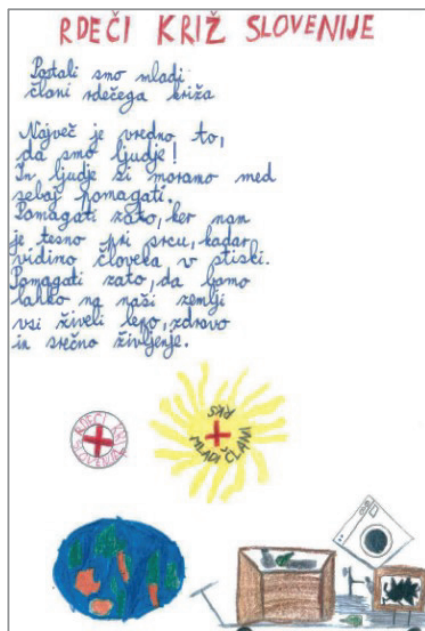 RDEČI KRIŽ SLOVENIJE
Postali smo mladi
člani rdečega križa
Največ je vredno to,
da smo ljudje!
In ljudje si moramo med
seboj pomagati.
Pomagati zato, ker nam
je tesno pri srcu, kadar
vidimo človeka v stiski.
Pomagati zato, da bomo
lahko na naši zemlji
vsi živeli lepo, zdravo
in srečno življenje.
RDEČI KRIŽ
SLOVENIJE
RKS
MLADI ČLANI